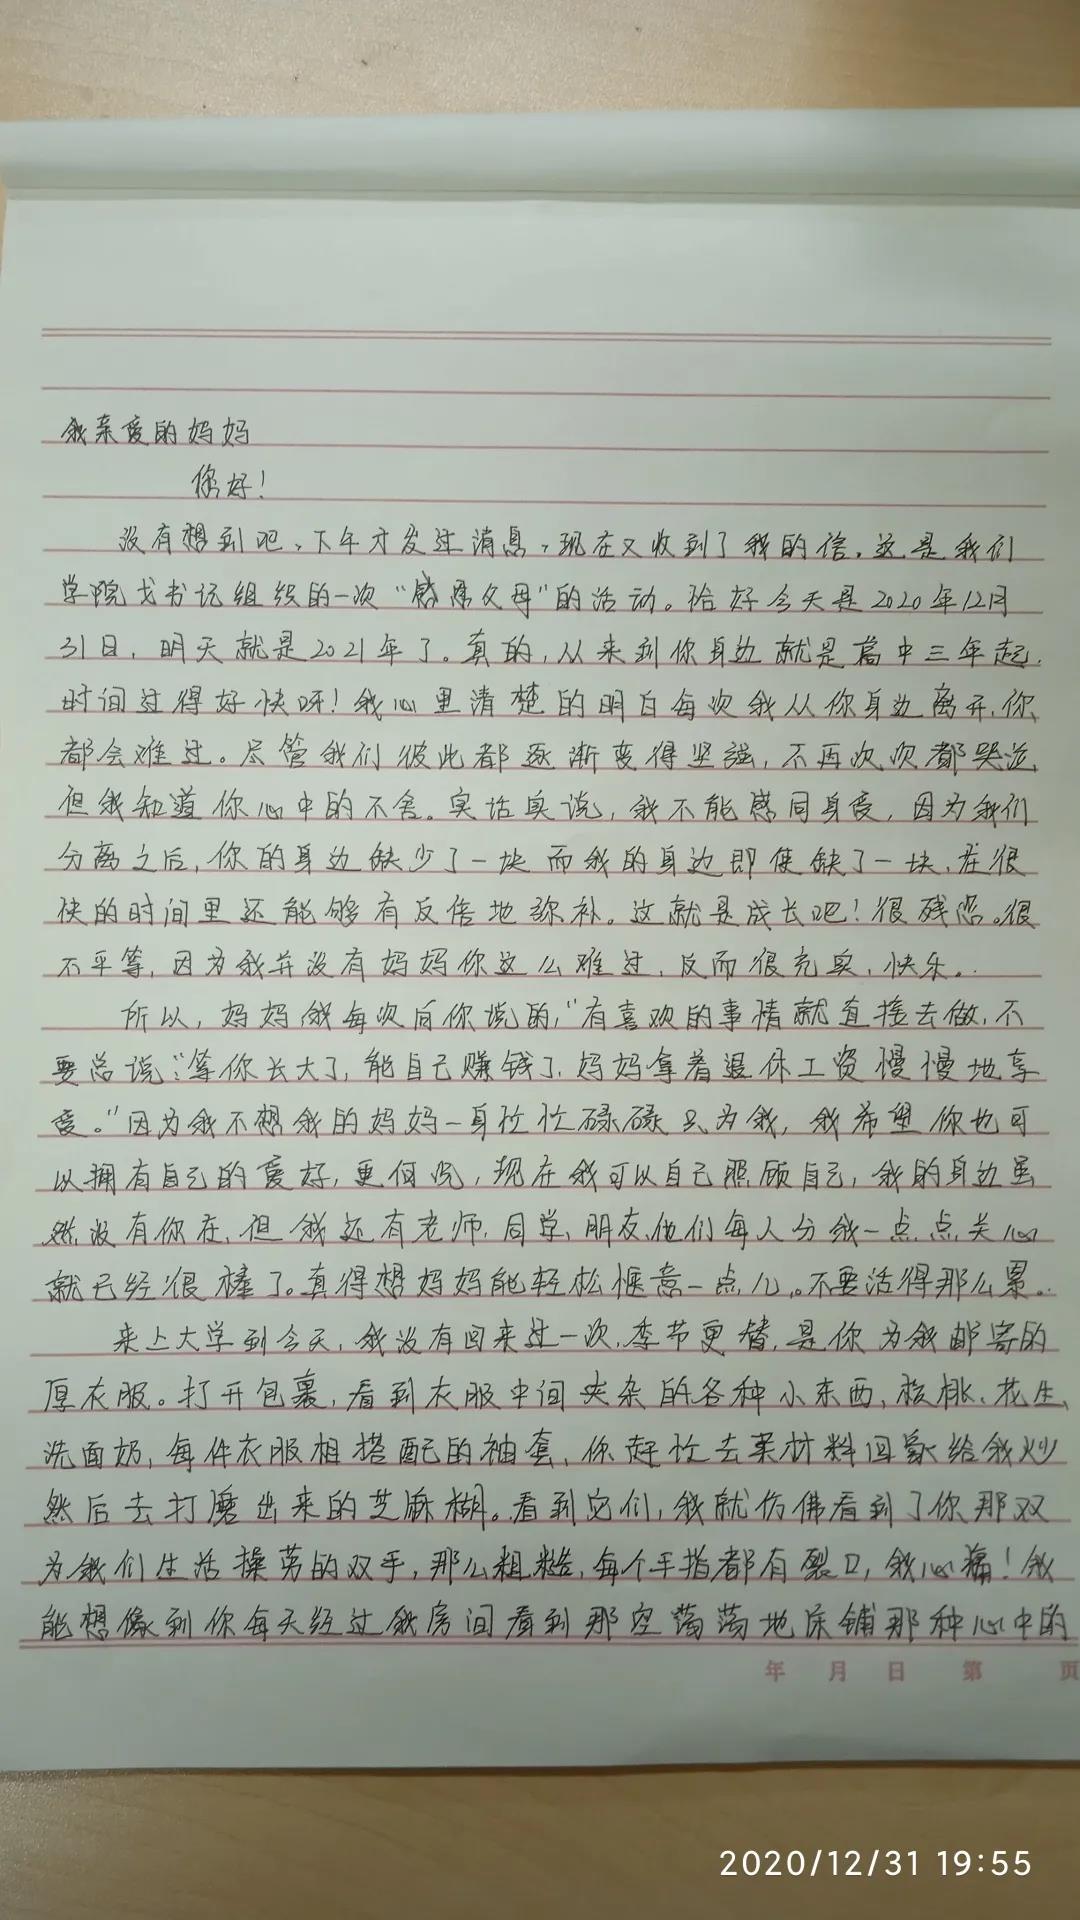 我亲爱的妈妈
你好！
没有想到吧，下午才发过消息，现在又收到了我的信。这是我们
学院戈书记组织的一次“感恩父母”的活动。恰好今天是2020年12月
31日，明天就是2021年了。真的，从来到你身边就是高中三年起，
时间过得好快呀！我心里清楚的明白每次我从你身边离开，你
都会难过。尽管我们彼此都逐渐变得坚强，不再次次都哭泣，
但我知道你心中的不舍。实话实说，我不能感同身受，因为我们
分离之后，你的身边缺少了一块而我的身边即使缺了一块，在很
快的时间里还能够有反倍地弥补。这就是成长吧！很残忍。很
不平等，因为我并没有妈妈你这么难过，反而很充实，快乐。
所以，妈妈，我每次向你说的，“有喜欢的事情就直接去做，不
要总说：“等你长大了，能自己赚钱了，妈妈拿着退休工资慢慢地享
受。”因为我不想我的妈妈一身忙忙碌碌只为我，我希望你也可
以拥有自己的爱好，更何况，现在我可以自己照顾自己，我的身边虽
然没有你在，但我还有老师，同学，朋友，他们每人分我一点点关心
就已经很棒了。真得想妈妈能轻松惬意一点儿。不要活得那么累。
来上大学到今天，我没有回来过一次，季节更替，是你为我邮寄的
厚衣服。打开包裹，看到衣服中间夹杂的各种小东西，核桃、花生、
洗面奶，每件衣服相搭配的袖套，你赶忙去买材料回家给我炒
然后去打磨出来的芝麻糊。看到它们，我就仿佛看到了你那双
为我们生活操劳的双手，那么粗糙，每个手指都有裂口，我心痛！我
能想像到你每天经过我房间看到那空荡荡地床铺那种心中的
年 月 日 第 页
2020/12/31 19:55